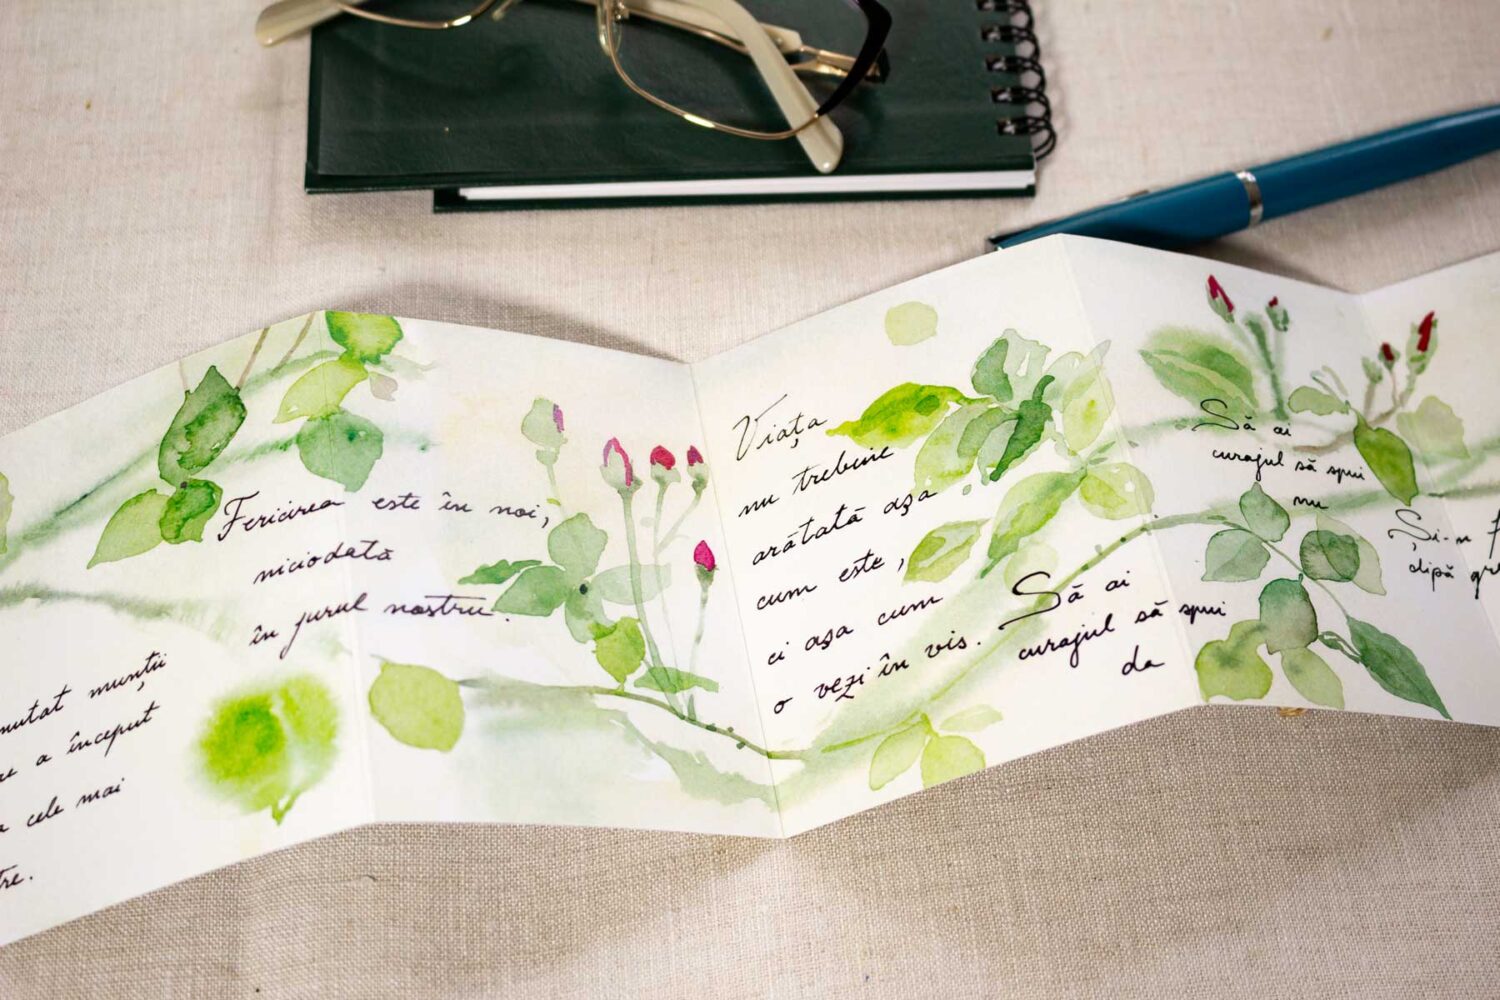 munții
a început
cele mai
Fericirea este în noi,
niciodată
în jurul nostru.
Viața
nu trebuie
arătată așa
cum este,
ci așa cum
o vezi în vis.
Să ai
curajul să spui
da
Să ai
curajul să spui
nu
Și-n
după